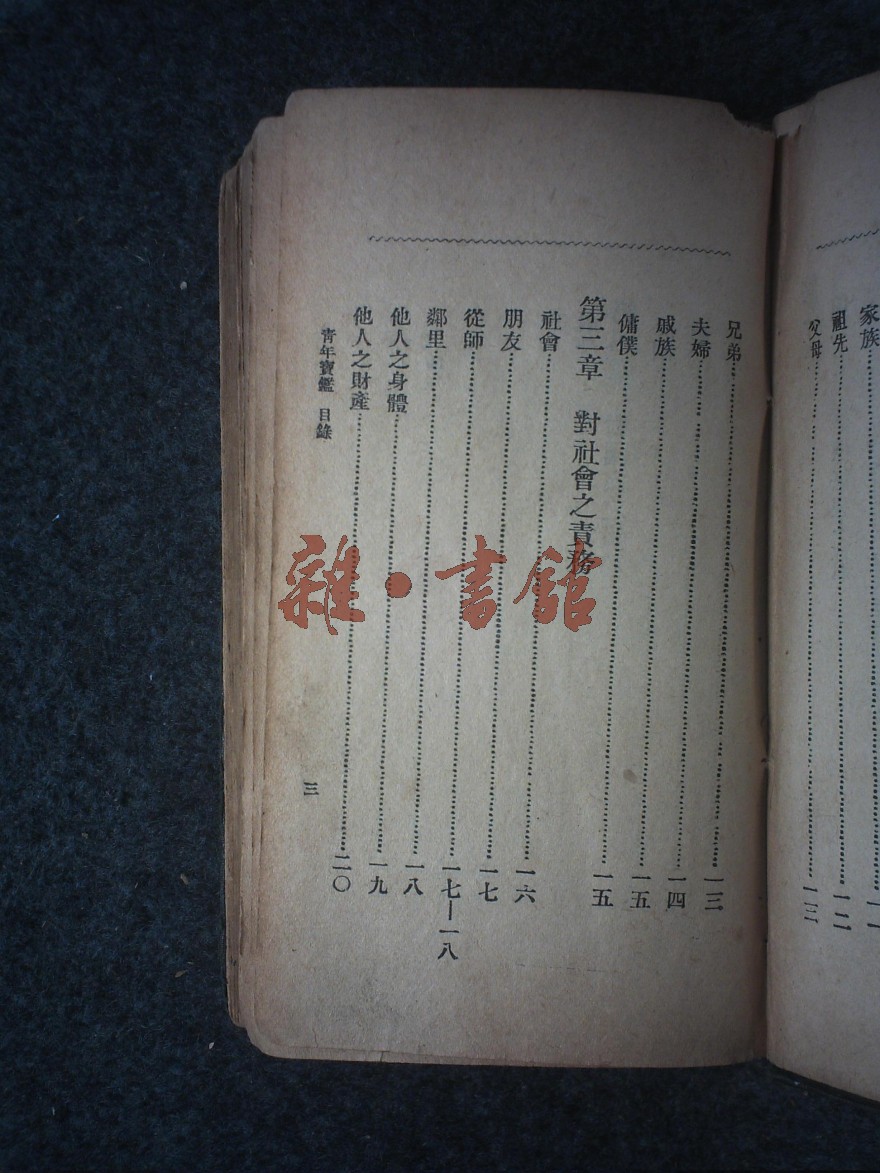 家族
祖先……一二
父母……一三
兄弟……一三
夫婦……一四
戚族……一五
傭僕……一五
第三章　對社會之責務
社會……一六
朋友……一七
從師……一七—一八
鄰里……一八
他人之身體……一九
他人之財產……二〇
青年寶鑑　目錄
三
雜·書館